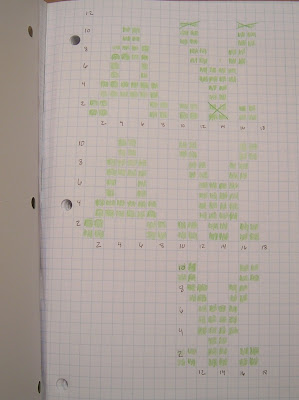 12
10
8
6
4
2
2 4 6 8 10 12 14 16 18
10
8
6
4
2
2 4 6 8 10 12 14 16 18
10
8
6
4
2
12 14 16 18